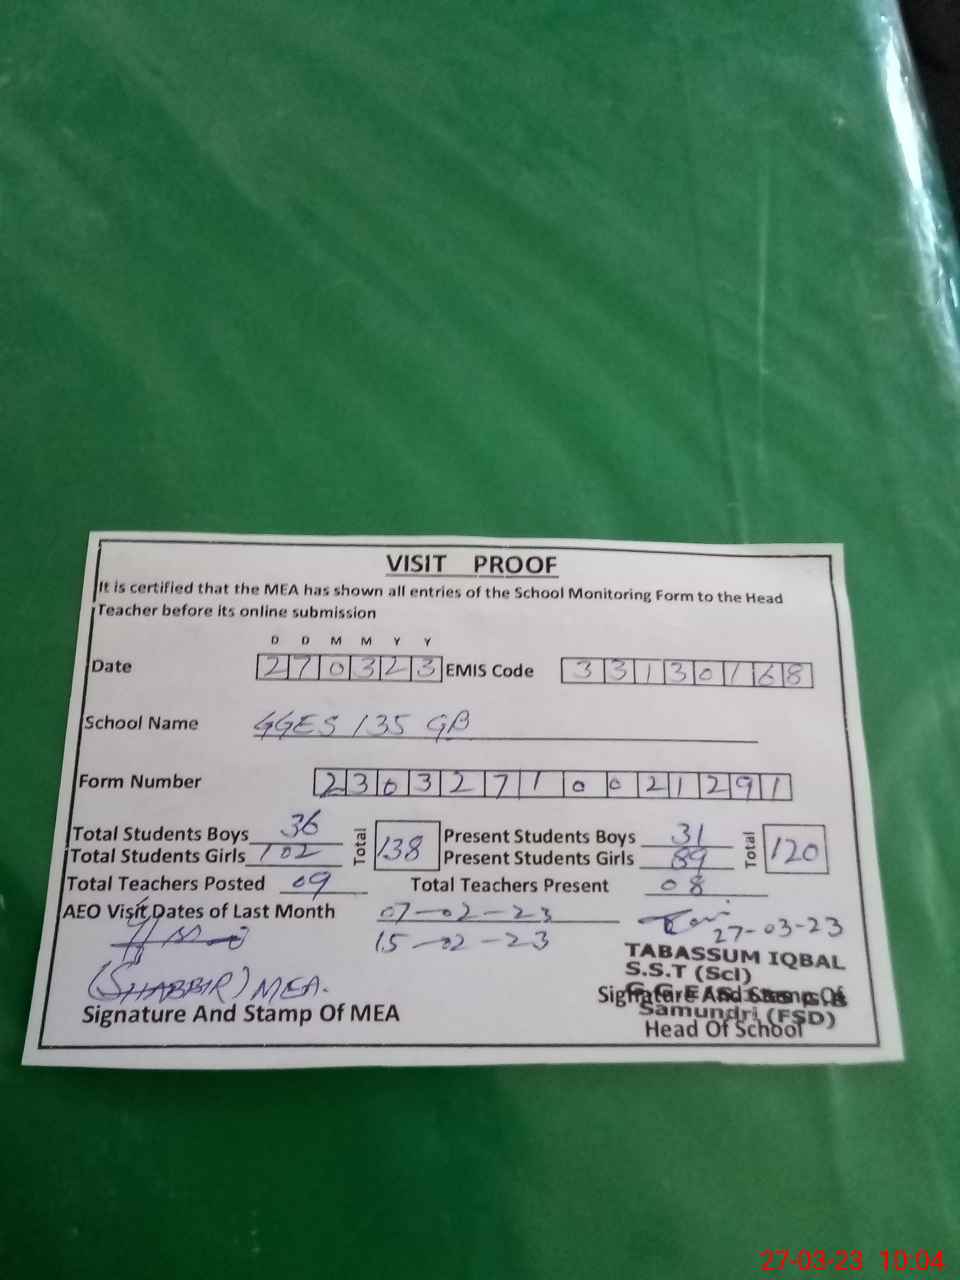 VISIT PROOF
It is certified that the MEA has shown all entries of the School Monitoring Form to the Head
Teacher before its online submission
D D M M Y Y
Date 270323 EMIS Code 33130168
School Name GGES 135 GB
Form Number 23032710021291
Total Students Boys 36 Total 138 Present Students Boys 31 Total 120
Total Students Girls 102 Present Students Girls 89
Total Teachers Posted 09 Total Teachers Present 08
AEO Visit Dates of Last Month 07-02-23
15-02-23 27-03-23
TABASSUM IQBAL
S.S.T (Sci)
(SHABBIR) MEA.
Signature And Stamp Of MEA
Signature And Stamp Of
Samundri (FSD)
Head Of School
27-03-23 10:04